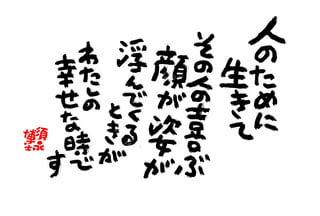 人のために
生きて
その人の喜ぶ
顔が姿が
浮んでくる
ときが
わたしの
幸せな時で
す
須永
博士